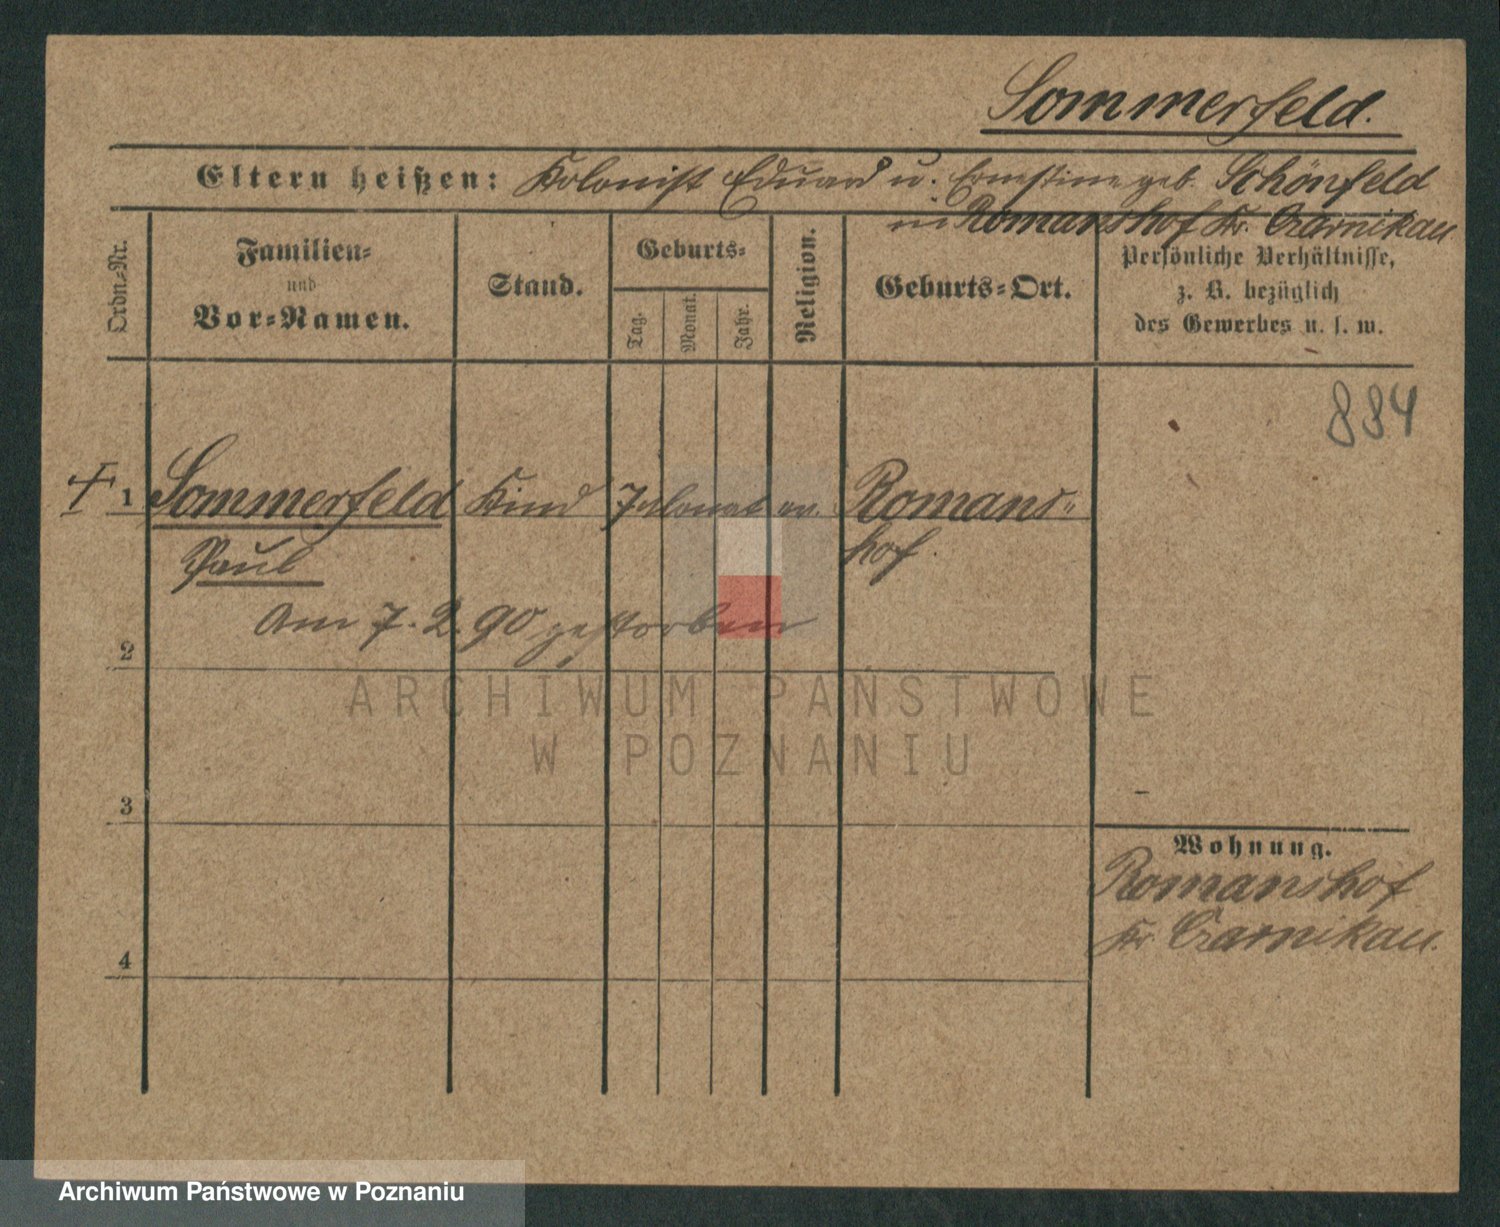 Sommerfeld.
Eltern heißen: Kolonist Eduard u. Ernestine geb. Schönfeld
in Romanshof Kr. Czarnikau
Ordn.-Nr.
Familien-
und
Vor-Namen.
Stand.
Geburts-
Tag.
Monat.
Jahr.
Religion.
Geburts-Ort.
Persönliche Verhältnisse,
z. B. bezüglich
des Gewerbes u. s. w.
884
1 Sommerfeld Kind 7 Monat ev. Romans-
Paul hof.
am 7. 2. 90 gestorben
2
ARCHIWUM PAŃSTWOWE
W POZNANIU
3
Wohnung.
Romanshof
Kr. Czarnikau.
4
Archiwum Państwowe w Poznaniu